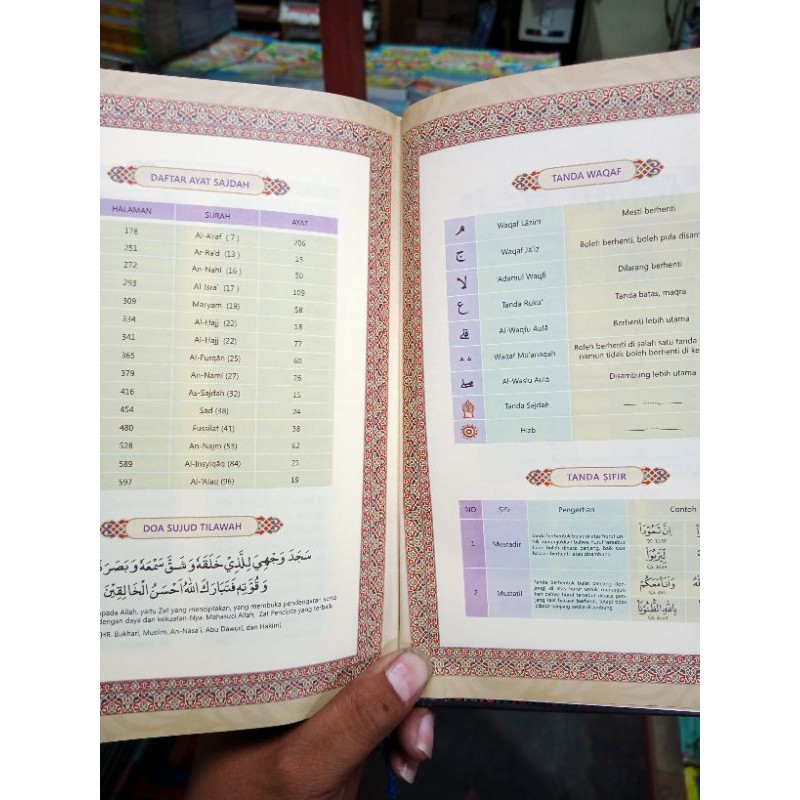 DAFTAR AYAT SAJDAH
HALAMAN SURAH AYAT
176 Al-A'raf ( 7 ) 206
251 Ar-Ra'd (13 ) 15
272 An-Nahl (16 ) 50
293 Al-Isra' (17 ) 109
309 Maryam (19) 58
334 Al-Hajj (22) 18
341 Al-Hajj (22) 77
365 Al-Furqān (25) 60
379 An-Naml (27) 26
416 As-Sajdah (32) 15
454 Sad (38) 24
480 Fussilat (41) 38
528 An-Najm (53) 62
589 Al-Insyiqāq (84) 21
597 Al-'Alaq (96) 19
DOA SUJUD TILAWAH
سَجَدَ وَجْهِيَ لِلَّذِيْ خَلَقَهُ وَشَقَّ سَمْعَهُ وَبَصَرَهُ
وَقُوَّتِهِ فَتَبَارَكَ اللهُ أَحْسَنُ الْخَالِقِيْنَ
pada Allah, yaitu Zat yang menciptakan, yang membuka pendengaran
dengan daya dan kekuatan-Nya. Mahasuci Allah, Zat Pencipta yang terbaik
HR. Bukhari, Muslim, An-Nasa'i, Abu Dawud, dan Hakim)
TANDA WAQAF
مـ Waqaf Lāzim Mesti berhenti
ج Waqaf Ja'iz Boleh berhenti, boleh pula disam
لا Adamul Waqfi Dilarang berhenti
ع Tanda Ruku' Tanda batas, maqra
قلى Al-Waqfu Aulā Berhenti lebih utama
Waqaf Mu'anaqah Boleh berhenti di salah satu tanda
namun tidak boleh berhenti di ke
صلى Al-Waslu Aula Disambung lebih utama
Tanda Sajdah
Hizb
TANDA ṢIFIR
NO Sifir Pengertian Contoh
1 Mustadir
2 Mustatil